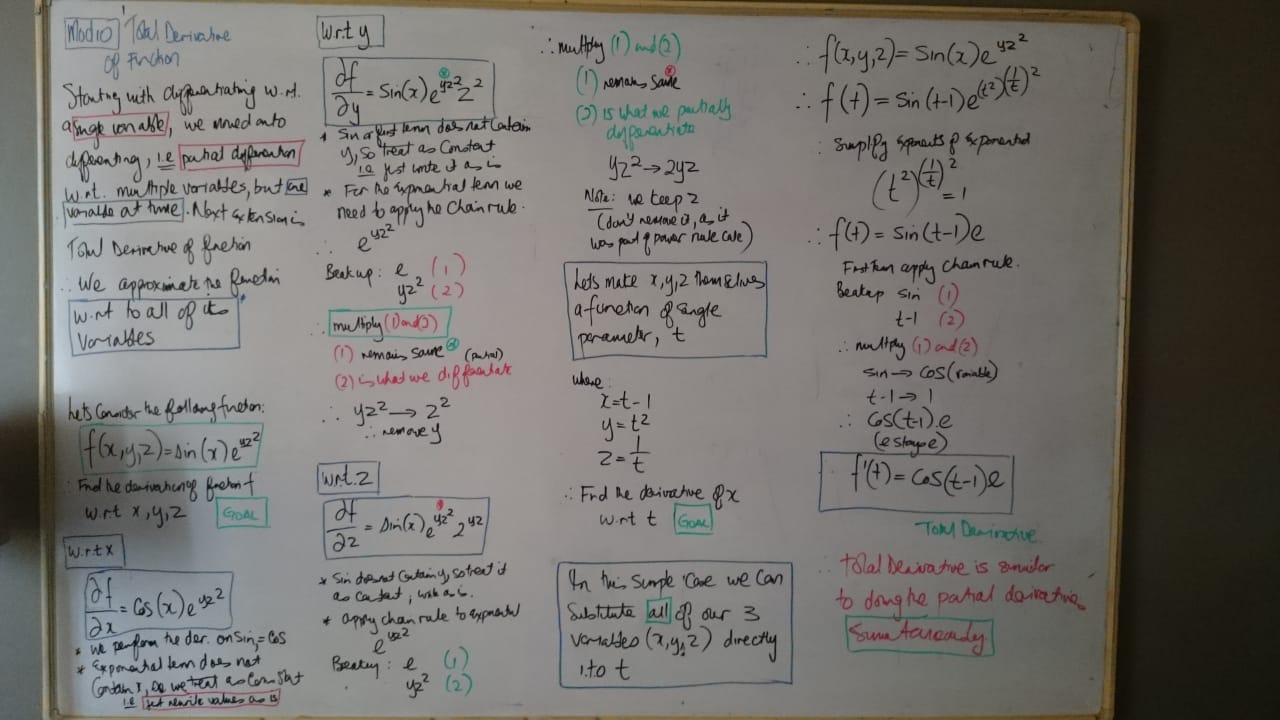 Mod10 Total Derivative
of Function
Starting with differentiating w.r.t.
a single variable, we moved onto
differenting, i.e partial differention
w.r.t. multiple variables, but one
variable at time. Next extension is
Total Derivative of function
∴ We approximate the function
w.r.t to all of its
variables
Lets Consider the following function:
f(x,y,z)=sin(x)e^{yz²}
∴ Find the derivation of function f
w.r.t x,y,z GOAL
w.r.t x
∂f/∂x = Cos(x)e^{yz²}
* We perform the der. on Sin, = Cos
* Exponential term does not
Contain x, so we treat as Constant
i.e just rewrite values as is
w.r.t y
∂f/∂y = Sin(x)e^{yz²}z²
* Sin or first term does not Contain
y, So treat as Constant
i.e just write it as is
* For the Exponential term we
need to apply the Chain rule.
∴ e^{yz²}
Breakup: e (1)
yz² (2)
∴ multiply (1) and (2)
(1) remains same (partial)
(2) is what we differentiate
∴ yz² → z²
∴ remove y
w.r.t. z
∂f/∂z = Sin(x)e^{yz²} 2yz
* Sin does not Contain y, so treat it
as constant, write as is.
* apply chain rule to exponential
e^{yz²}
Breakup: e (1)
yz² (2)
∴ multiply (1) and (2)
(1) remains same
(2) is what we partially
differentiate
yz² → 2yz
Note: we keep z
(don't remove it, as it
was part of power rule calc)
Lets make x,y,z themselves
a function of single
parameter, t
where:
x=t-1
y=t²
z=1/t
∴ Find the derivative of x
w.r.t t GOAL
In this Simple Case we Can
Substitute all of our 3
variables (x,y,z) directly
into t
∴ f(x,y,z)=Sin(x)e^{yz²}
∴ f(t)=Sin(t-1)e^{(t²)(1/t)²}
∴ Simplify Exponents of Exponential
(t²)(1/t)² = 1
∴ f(t)=Sin(t-1)e
First term apply Chain rule.
Breakup Sin (1)
t-1 (2)
∴ multiply (1) and (2)
Sin → Cos(variable)
t-1 → 1
∴ Cos(t-1).e
(e stays e)
f'(t)=Cos(t-1)e
Total Derivative
∴ Total Derivative is similar
to doing the partial derivatives